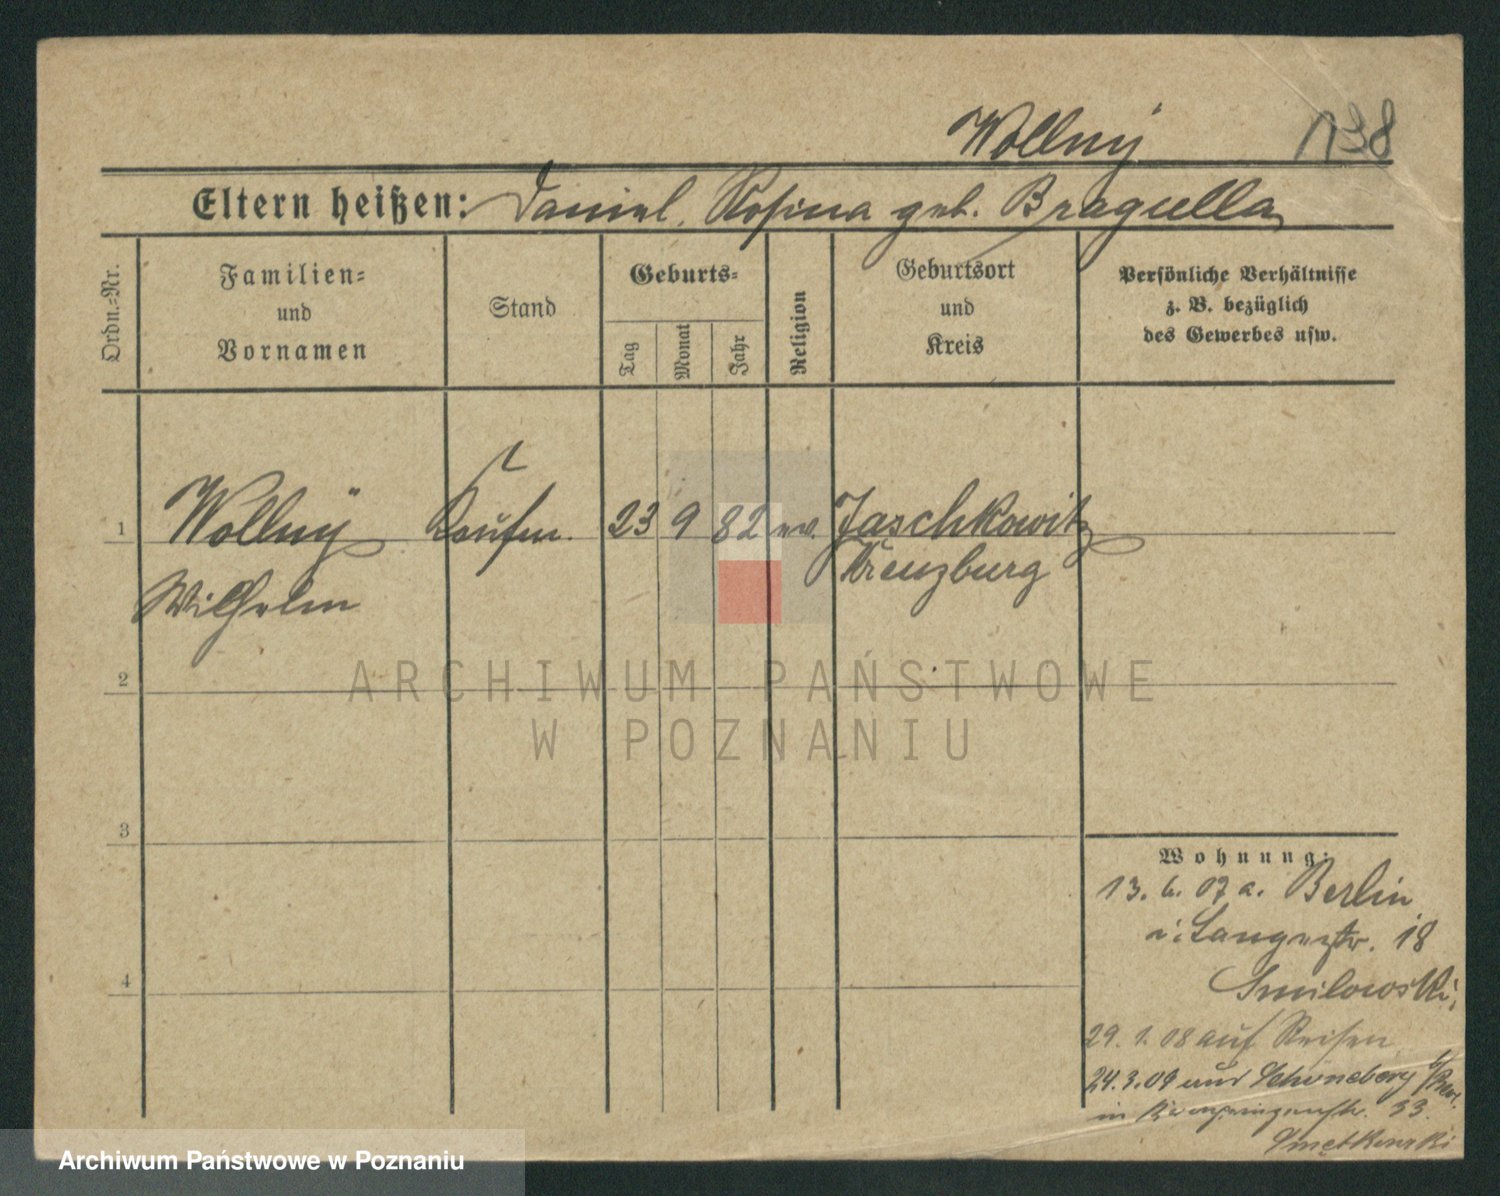 Wollny 1138
Eltern heißen: Daniel, Rosina geb. Bragulla
Ordn.-Nr.
Familien-
und
Vornamen
Stand
Geburts-
Tag
Monat
Jahr
Religion
Geburtsort
und
Kreis
Persönliche Verhältnisse
z. B. bezüglich
des Gewerbes usw.
1 Wollny Kaufm. 23 9 82 ev. Jaschkowitz
Wilhelm Kreuzburg
2
3
4
Wohnung:
13. 6. 07 a. Berlin
i. Langestr. 18
Smilowski,
29. 1. 08 auf Reisen
24.3.09 aus Schöneberg b/Berl.
in 33.
ARCHIWUM PAŃSTWOWE
W POZNANIU
Archiwum Państwowe w Poznaniu